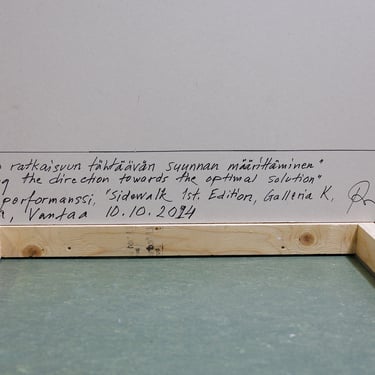 ratkaisuun tähtäävän suunnan määrittäminen"
the direction towards the optimal solution"
performanssi, "Sidewalk 1st. Edition, Galleria K,
Vantaa 10.10.2014